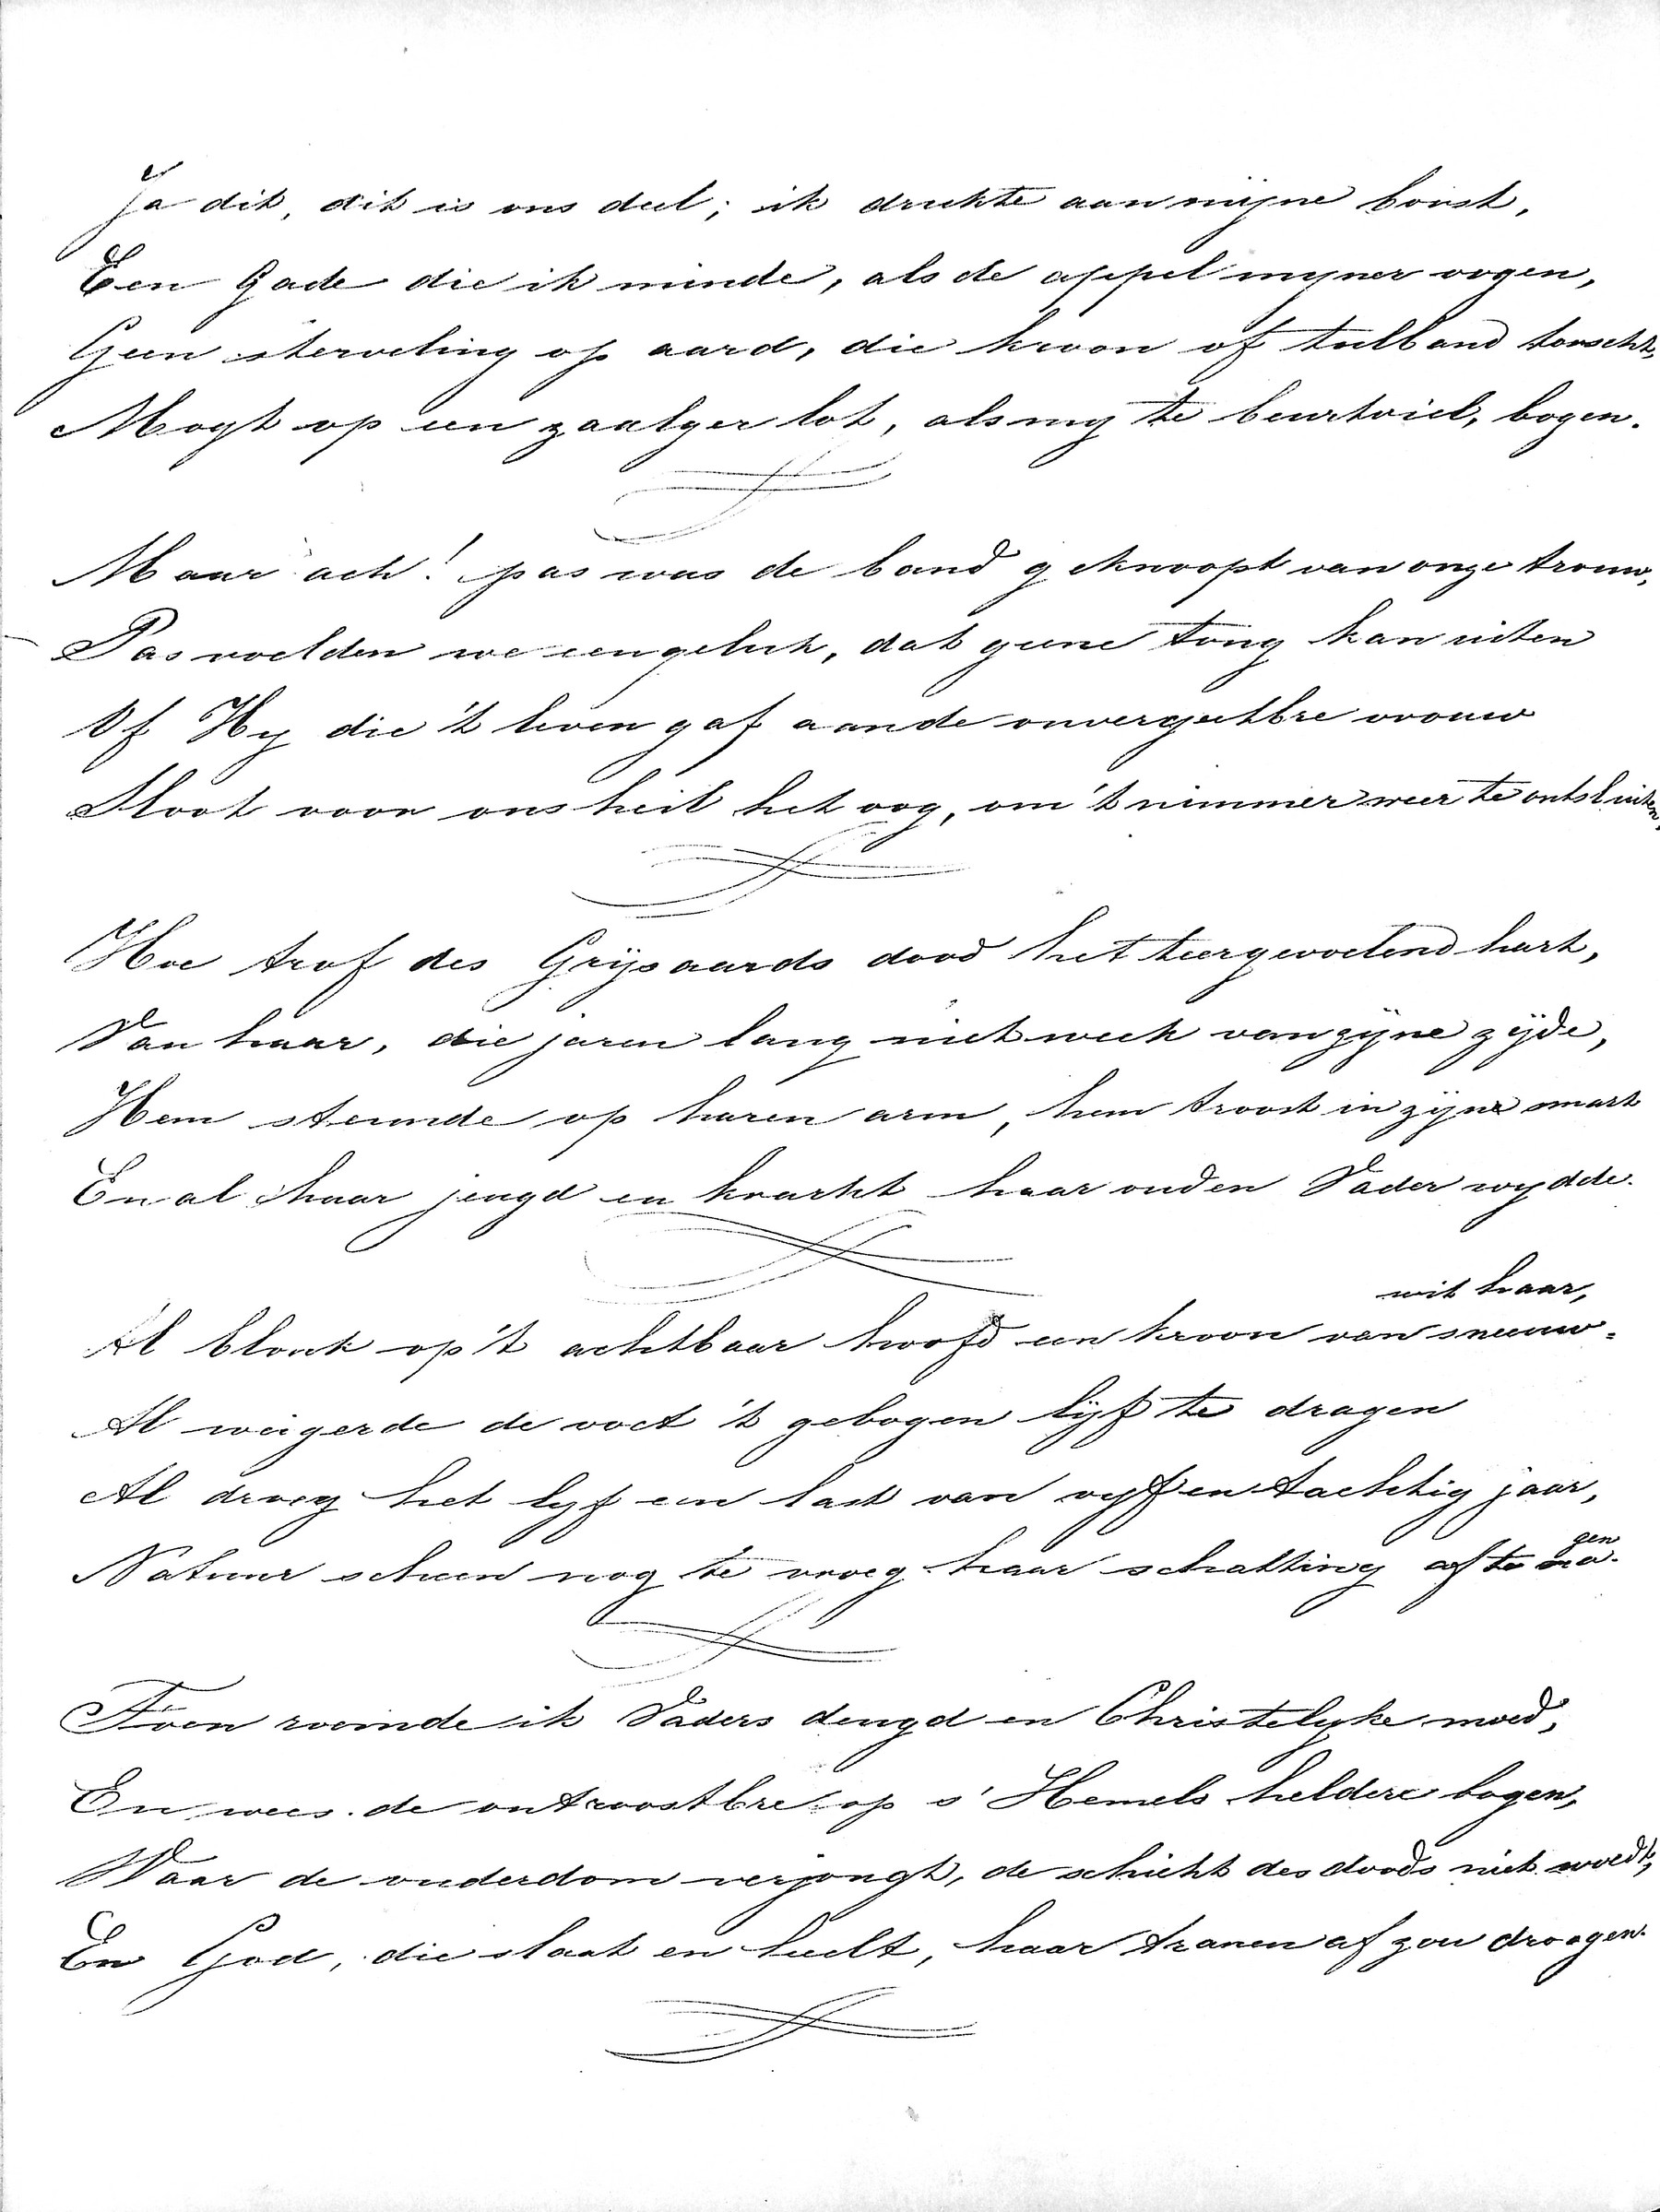 Ja dit, dit is ons deel; ik drukte aan mijne borst,
Een Gade die ik minde, als de appel myner oogen,
Geen sterveling op aard, die kroon of tulband torscht,
Mogt op een zaalger lot, als my te beurt viel, bogen.
Maar ach! pas was de band geknoopt van onze trouw,
Pas voelden we een geluk, dat geene tong kan uiten
Of Hy die 't leven gaf aan de onvergeetbre vrouw
Sloot voor ons heil het oog, om 't nimmer weer te ontsluiten,
Hoe trof des Grijsaards dood het teergevoelend hart,
Van haar, die jaren lang niet week van zijne zijde,
Hem steunde op haren arm, hem troost in zijne smart
En al haar jeugd en kracht haar ouden Vader wydde.
wit haar,
Al blonk op 't achtbaar hoofd een kroon van sneeuw-
Al weigerde de voet 't gebogen lijf te dragen
Al droeg het lyf een last van vyf en tachtig jaar,
Natuur scheen nog te vroeg haar schatting af te vra-
gen
Toen roemde ik Vaders deugd en Christelyke moed,
En wees de ontroostbre op s' Hemels heldere bogen,
Waar de ouderdom verjongt, de schicht des doods niet woedt,
En God, die slaat en heelt, haar tranen af zou droogen.